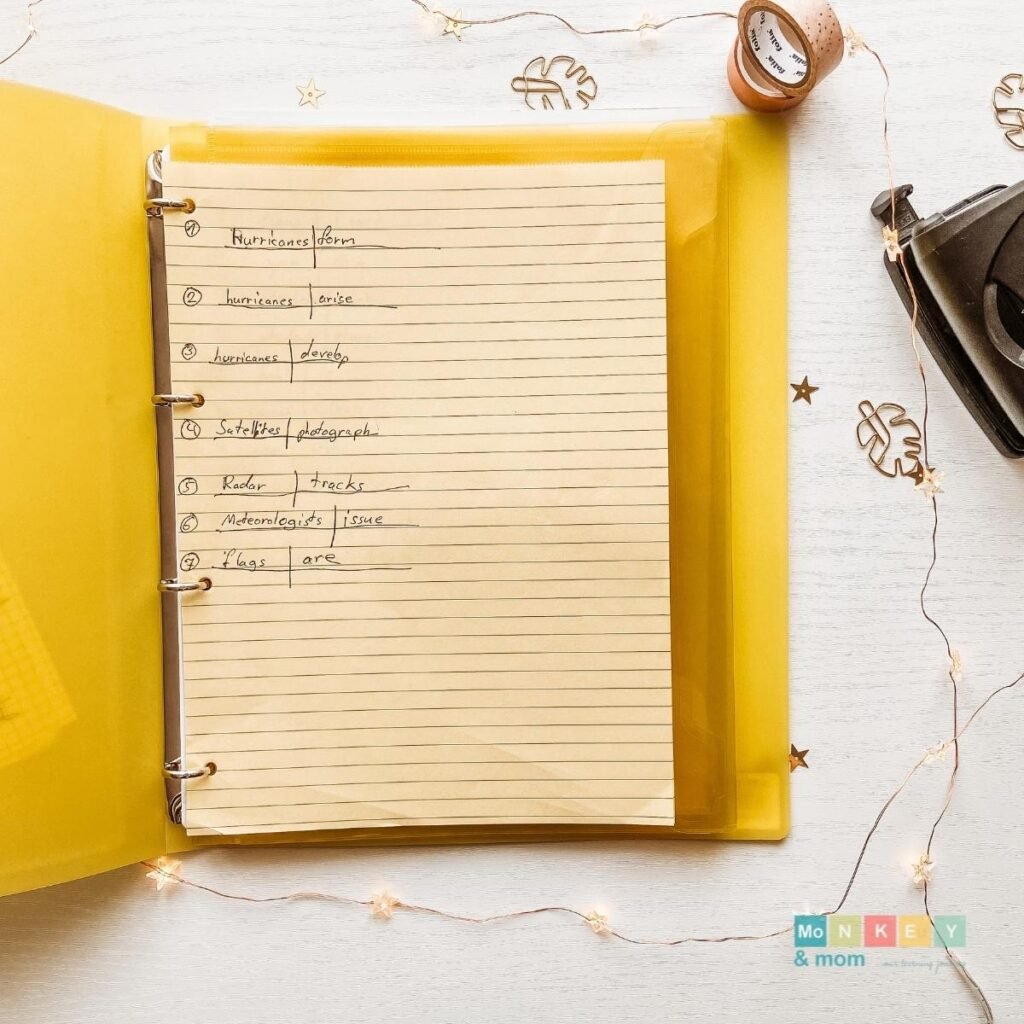 folia
folia
1 Hurricanes form
2 hurricanes arise
3 hurricanes develop
4 Satellites photograph
5 Radar tracks
6 Meteorologists issue
7 flags are
MoNKEY
& mom our learning journey